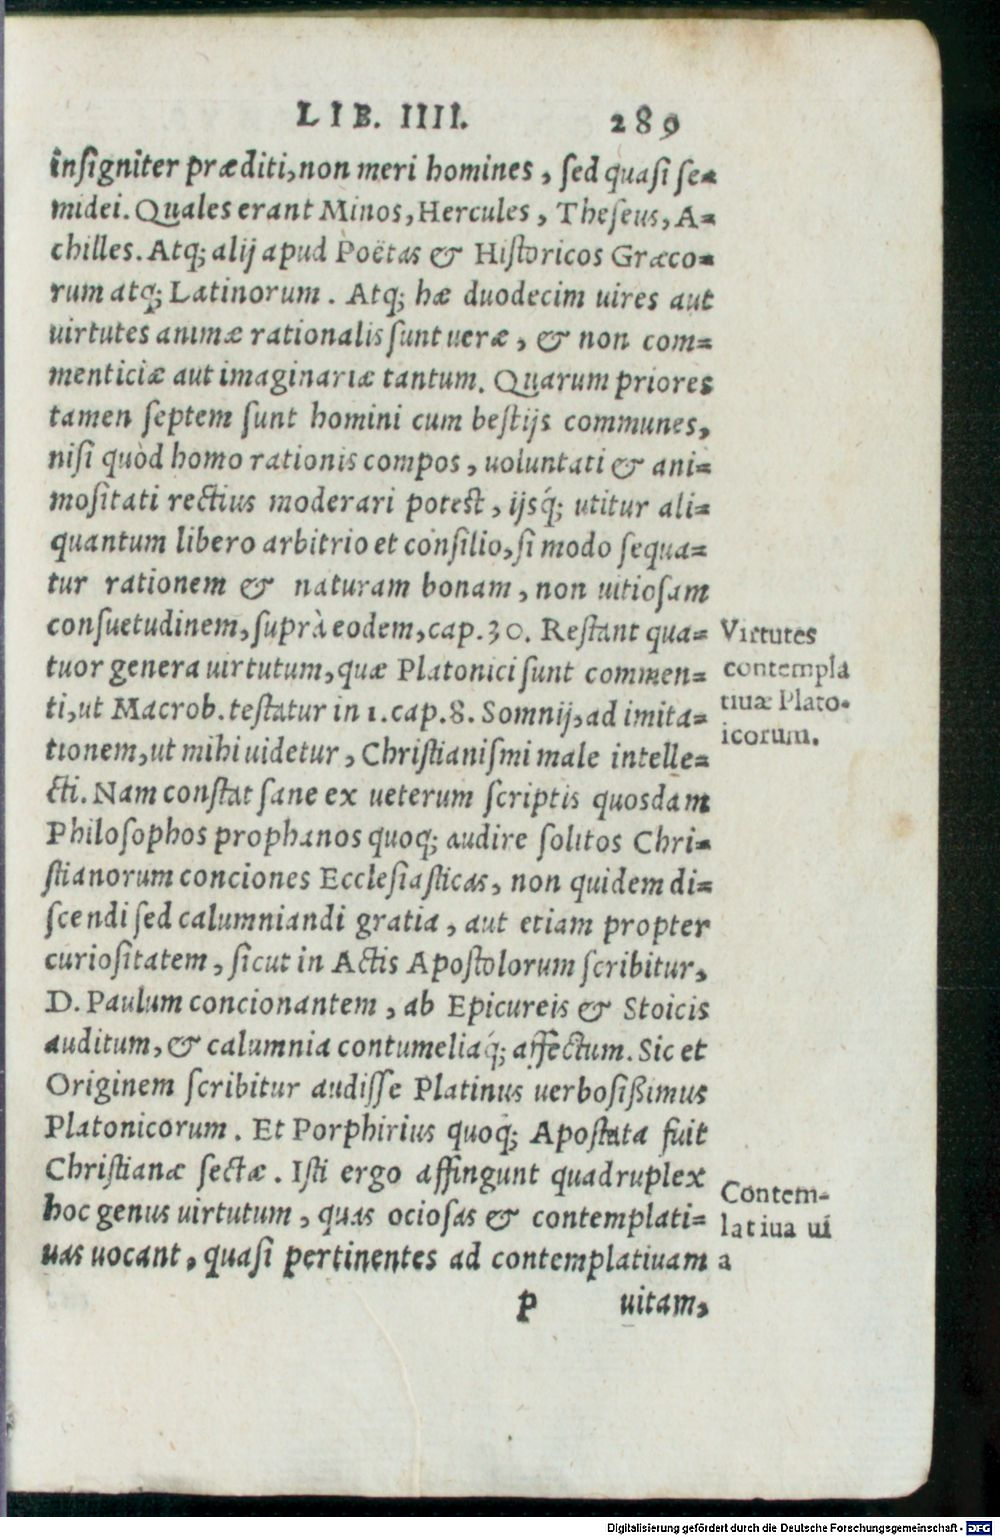 LIB. IIII. 289
insigniter præditi, non meri homines, sed quasi se=
midei. Quales erant Minos, Hercules, Theseus, A=
chilles. Atq; alij apud Poëtas & Historicos Græco=
rum atq; Latinorum. Atq; hæ duodecim uires aut
uirtutes animæ rationalis sunt ueræ, & non com=
menticiæ aut imaginariæ tantum. Quarum priores
tamen septem sunt homini cum bestijs communes,
nisi quòd homo rationis compos, uoluntati & ani=
mositati rectius moderari potest, ijsq́; utitur ali=
quantum libero arbitrio et consilio, si modo sequa=
tur rationem & naturam bonam, non uitiosam
consuetudinem, suprà eodem, cap. 30. Restant qua=
tuor genera uirtutum, quæ Platonici sunt commen=
ti, ut Macrob. testatur in 1. cap. 8. Somnij, ad imita=
tionem, ut mihi uidetur, Christianismi male intelle=
cti. Nam constat sane ex ueterum scriptis quosdam
Philosophos prophanos quoq; audire solitos Chri=
stianorum conciones Ecclesiasticas, non quidem di=
scendi sed calumniandi gratia, aut etiam propter
curiositatem, sicut in Actis Apostolorum scribitur,
D. Paulum concionantem, ab Epicureis & Stoicis
auditum, & calumnia contumeliaq́; affectum. Sic et
Originem scribitur audisse Platinus uerbosißimus
Platonicorum. Et Porphirius quoq; Apostata fuit
Christianæ sectæ. Isti ergo affingunt quadruplex
hoc genus uirtutum, quas ociosas & contemplati=
uas uocant, quasi pertinentes ad contemplatiuam
p uitam,
Virtutes
contempla
tiuæ Plato-
icorum.
Contem-
latiua ui
a
Digitalisierung gefördert durch die Deutsche Forschungsgemeinschaft - DFG